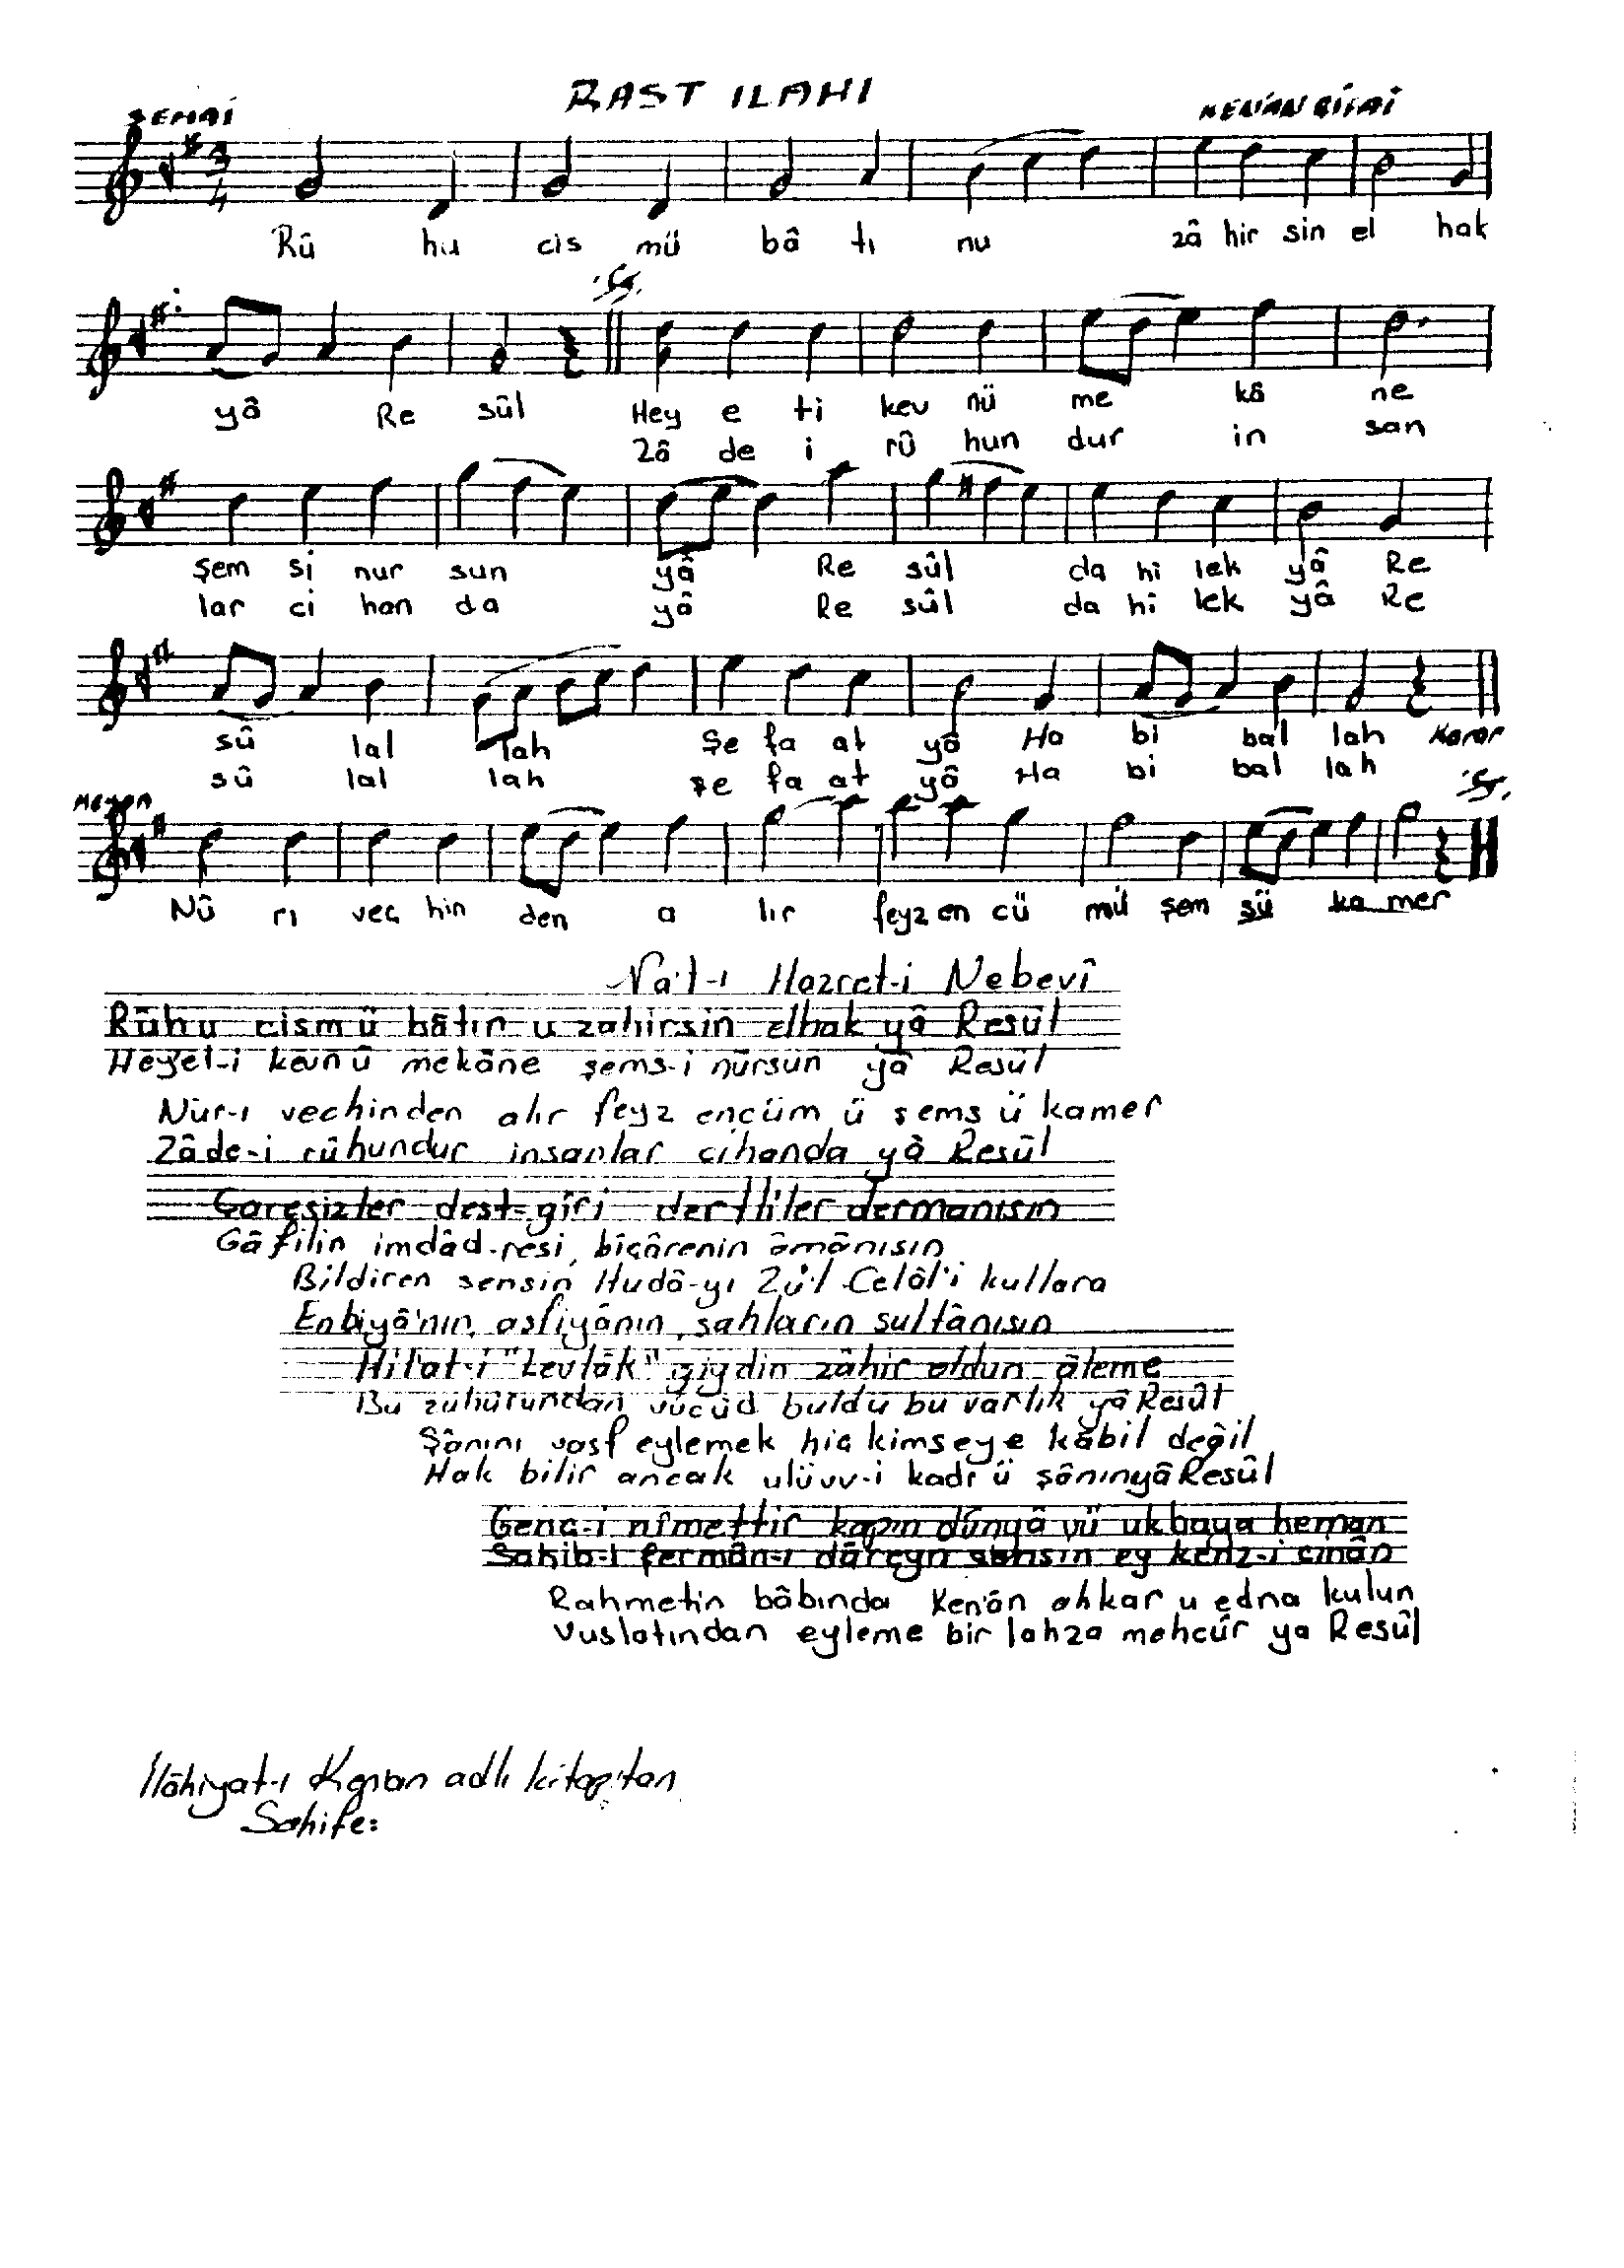 RAST ILAHI
SEMAİ
KEN'AN RİFAİ
3
4
Rû hu cis mü bâ tı nu zâ hir sin el hak
yâ Re sûl Hey e ti kev nü me kâ ne
Zâ de i rû hun dur in san
şem si nur sun yâ Re sûl da hi lek yâ Re
lar ci han da yâ Re sûl da hî lek yâ Re
sû lal lah Şe fa at yâ Ha bi bal lah Karar
sû lal lah şe fa at yâ Ha bi bal lah
Meyan
Nû rı vec hin den a lır feyz en cü mü şem sü ka mer
Na't-ı Hazret-i Nebevî
Rûhu cism ü bâtın u zahirsin elhak yâ Resûl
Heyet-i kevn û mekâne şems-i nûrsun yâ Resûl
Nûr-ı vechinden alır feyz encüm ü şems ü kamer
Zâde-i rûhundur insanlar cihanda yâ Resûl
Çaresizler dest-gîri dertliler dermanısın
Gâfilin imdâd-resi, bîçârenin âmânısın
Bildiren sensin Hudâ-yı Zü'l Celâl'i kullara
Enbiyâ'nın, asfiyânın, şahların sultânısın
Hil'at-i "Levlâk" giydin zâhir oldun âleme
Bu zuhûrundan vücûd buldu bu varlık yâ Resûl
Şânını vasf eylemek hiç kimseye kâbil değil
Hak bilir ancak ulüvv-i kadr ü şânın yâ Resûl
Genc-i nîmettir kapın dünyâ vü ukbaya heman
Sahib-i fermân-ı dâreyn sensin ey kenz-i cinân
Rahmetin bâbında Ken'ân ahkar u edna kulun
Vuslatından eyleme bir lahza mehcûr ya Resûl
İlâhiyat-ı Kenan adlı kitaptan
Sahife: